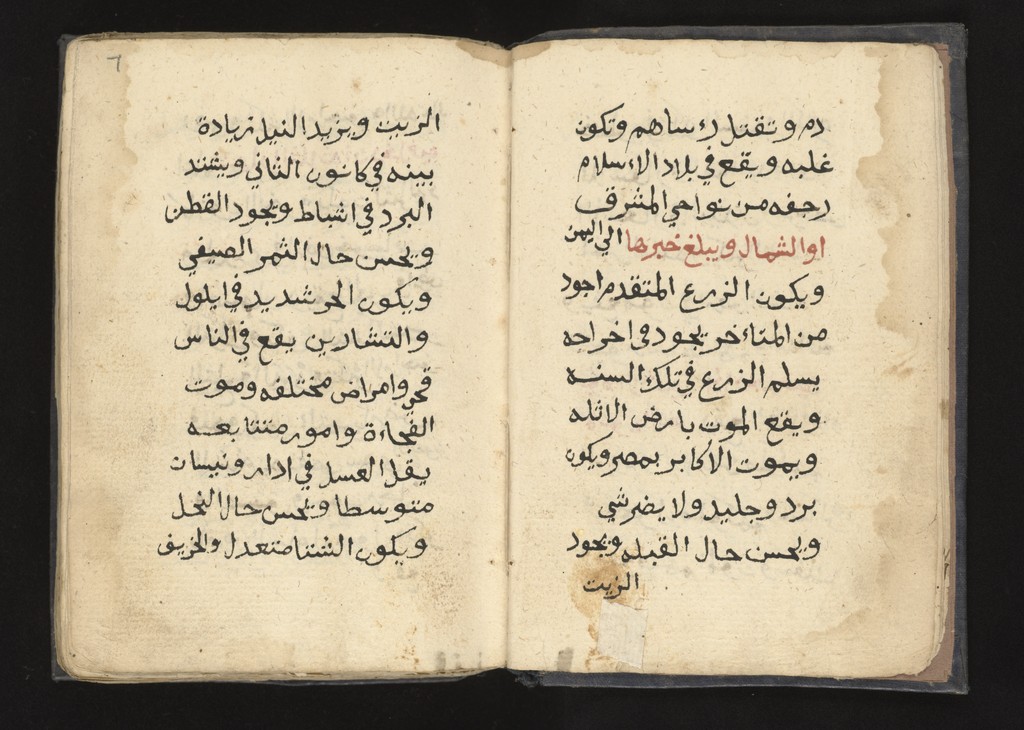 دم وتقتل رءساهم وتكون
غلبه ويقع في بلاد الاسلام
رجفه من نواحي المشرق
او الشمال ويبلغ خبرها الى اليمن
ويكون الزرع المتقدم اجود
من المتاءخر يجود في اخراجه
يسلم الزرع في تلك السنه
ويقع الموت بارض الاثله
ويموت الأكابر بمصر ويكون
برد وجليد ولا يضر شي
ويحسن حال القبله ويجود
الزيت
٦
الزيت ويزيد النيل زيادة
بينه في كانون الثاني ويشتد
البرد في اشباط ويجود القطن
ويحسن حال الثمر الصيفي
ويكون الحر شديد في ايلول
والتشارين يقع في الناس
وامراض مختلفه وموت
الفجاءة وامور متتابعه
يقل العسل في ادار ونيسان
متوسطا ويحسن حال النحل
ويكون الشتا متعدل والخريف